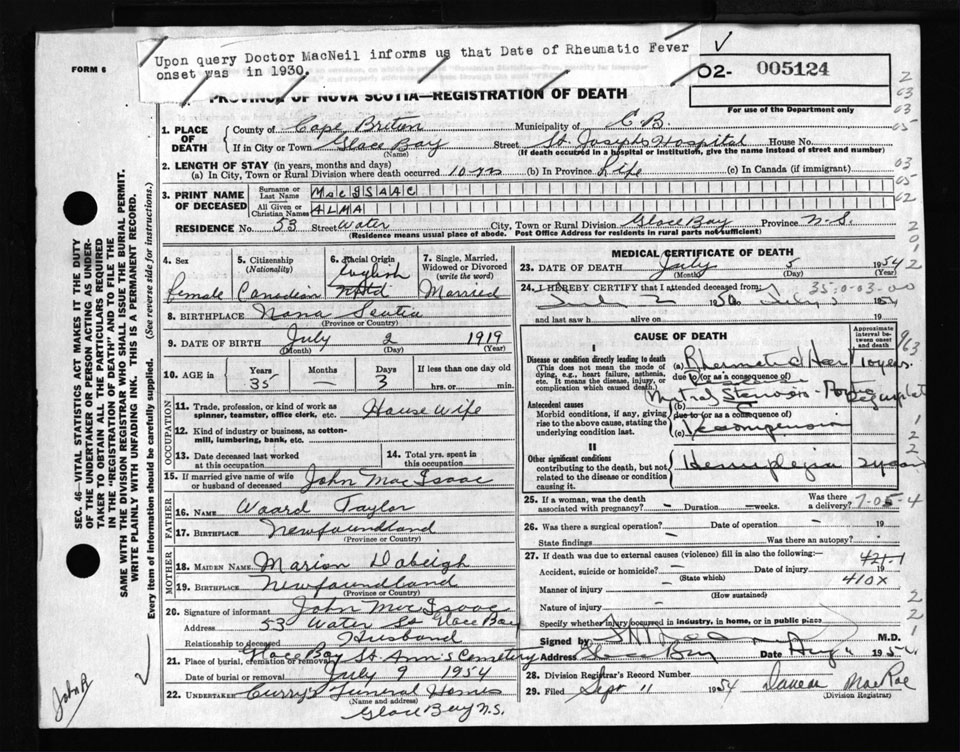 Upon query Doctor MacNeil informs us that Date of Rheumatic Fever
onset was in 1930.
FORM 6
02- 005124
For use of the Department only
PROVINCE OF NOVA SCOTIA—REGISTRATION OF DEATH
1. PLACE OF DEATH County of Cape Breton Municipality of C B.
If in City or Town Glace Bay Street St. Joseph's Hospital House No.
(Name) (If death occurred in a hospital or institution, give the name instead of street and number)
2. LENGTH OF STAY (in years, months and days)
(a) In City, Town or Rural Division where death occurred 10 yrs (b) In Province Life (c) In Canada (if immigrant)
3. PRINT NAME OF DECEASED Surname or Last Name MacISAAC
All Given or Christian Names ALMA
RESIDENCE No. 53 Street Water City, Town or Rural Division Glace Bay Province N.S.
(Residence means usual place of abode. Post Office Address for residents in rural parts not sufficient)
4. Sex 5. Citizenship (Nationality) 6. Racial Origin 7. Single, Married, Widowed or Divorced (write the word)
female Canadian English Married
8. BIRTHPLACE Nova Scotia
(Province or Country)
9. DATE OF BIRTH July 2 1919
(Month) (Day) (Year)
10. AGE in Years Months Days If less than one day
35 — 3 hrs. or min.
OCCUPATION
11. Trade, profession, or kind of work as spinner, teamster, office clerk, etc. House Wife
12. Kind of industry or business, as cotton-mill, lumbering, bank, etc.
13. Date deceased last worked at this occupation
14. Total yrs. spent in this occupation
15. If married give name of wife or husband of deceased John MacIsaac
FATHER
16. Name Taylor
17. BIRTHPLACE Newfoundland
(Province or Country)
MOTHER
18. MAIDEN NAME Marion
19. BIRTHPLACE Newfoundland
(Province or Country)
20. Signature of informant John MacIsaac
Address 53 Water St Glace Bay
Relationship to deceased Husband
21. Place of burial, cremation or removal Glace Bay St. Ann's Cemetery
Date of burial or removal July 9 1954
22. UNDERTAKER Curry's Funeral Homes
(Name and address)
Glace Bay N.S.
MEDICAL CERTIFICATE OF DEATH
23. DATE OF DEATH July 5 1954
(Month) (Day) (Year)
24. I HEREBY CERTIFY that I attended deceased from:
35:0-03-00
and last saw h alive on
CAUSE OF DEATH
Approximate interval between onset and death
I
Disease or condition directly leading to death
(This does not mean the mode of dying, e.g., heart failure, asthenia, etc. It means the disease, injury, or complication which caused death.)
(a) Rheumatic Heart 10 years
due to (or as a consequence of)
Antecedent causes
Morbid conditions, if any, giving rise to the above cause, stating the underlying condition last.
(b) Mitral Stenosis
due to (or as a consequence of)
(c) Decompensation
II
Other significant conditions
contributing to the death, but not related to the disease or condition causing it.
Hemiplegia 2 years
25. If a woman, was the death associated with pregnancy? - Duration —weeks. Was there a delivery? 7-05-4
26. Was there a surgical operation? - Date of operation — 19
State findings Was there an autopsy?
27. If death was due to external causes (violence) fill in also the following:—
Accident, suicide or homicide? - Date of injury 19
(State which)
421-1
410X
Manner of injury
(How sustained)
Nature of injury
Specify whether injury occurred in industry, in home, or in public place
Signed by M.D.
Address Glace Bay Date Aug 11 1954
28. Division Registrar's Record Number
29. Filed Sept 11 1954 MacRae
(Division Registrar)
SEC. 46—VITAL STATISTICS ACT MAKES IT THE DUTY
OF THE UNDERTAKER OR PERSON ACTING AS UNDER-
TAKER TO OBTAIN ALL THE PARTICULARS REQUIRED
IN THE "REGISTRATION OF DEATH" AND TO FILE THE
SAME WITH THE DIVISION REGISTRAR WHO SHALL ISSUE THE BURIAL PERMIT.
WRITE PLAINLY WITH UNFADING INK. THIS IS A PERMANENT RECORD.
Every item of information should be carefully supplied. (See reverse side for instructions.)